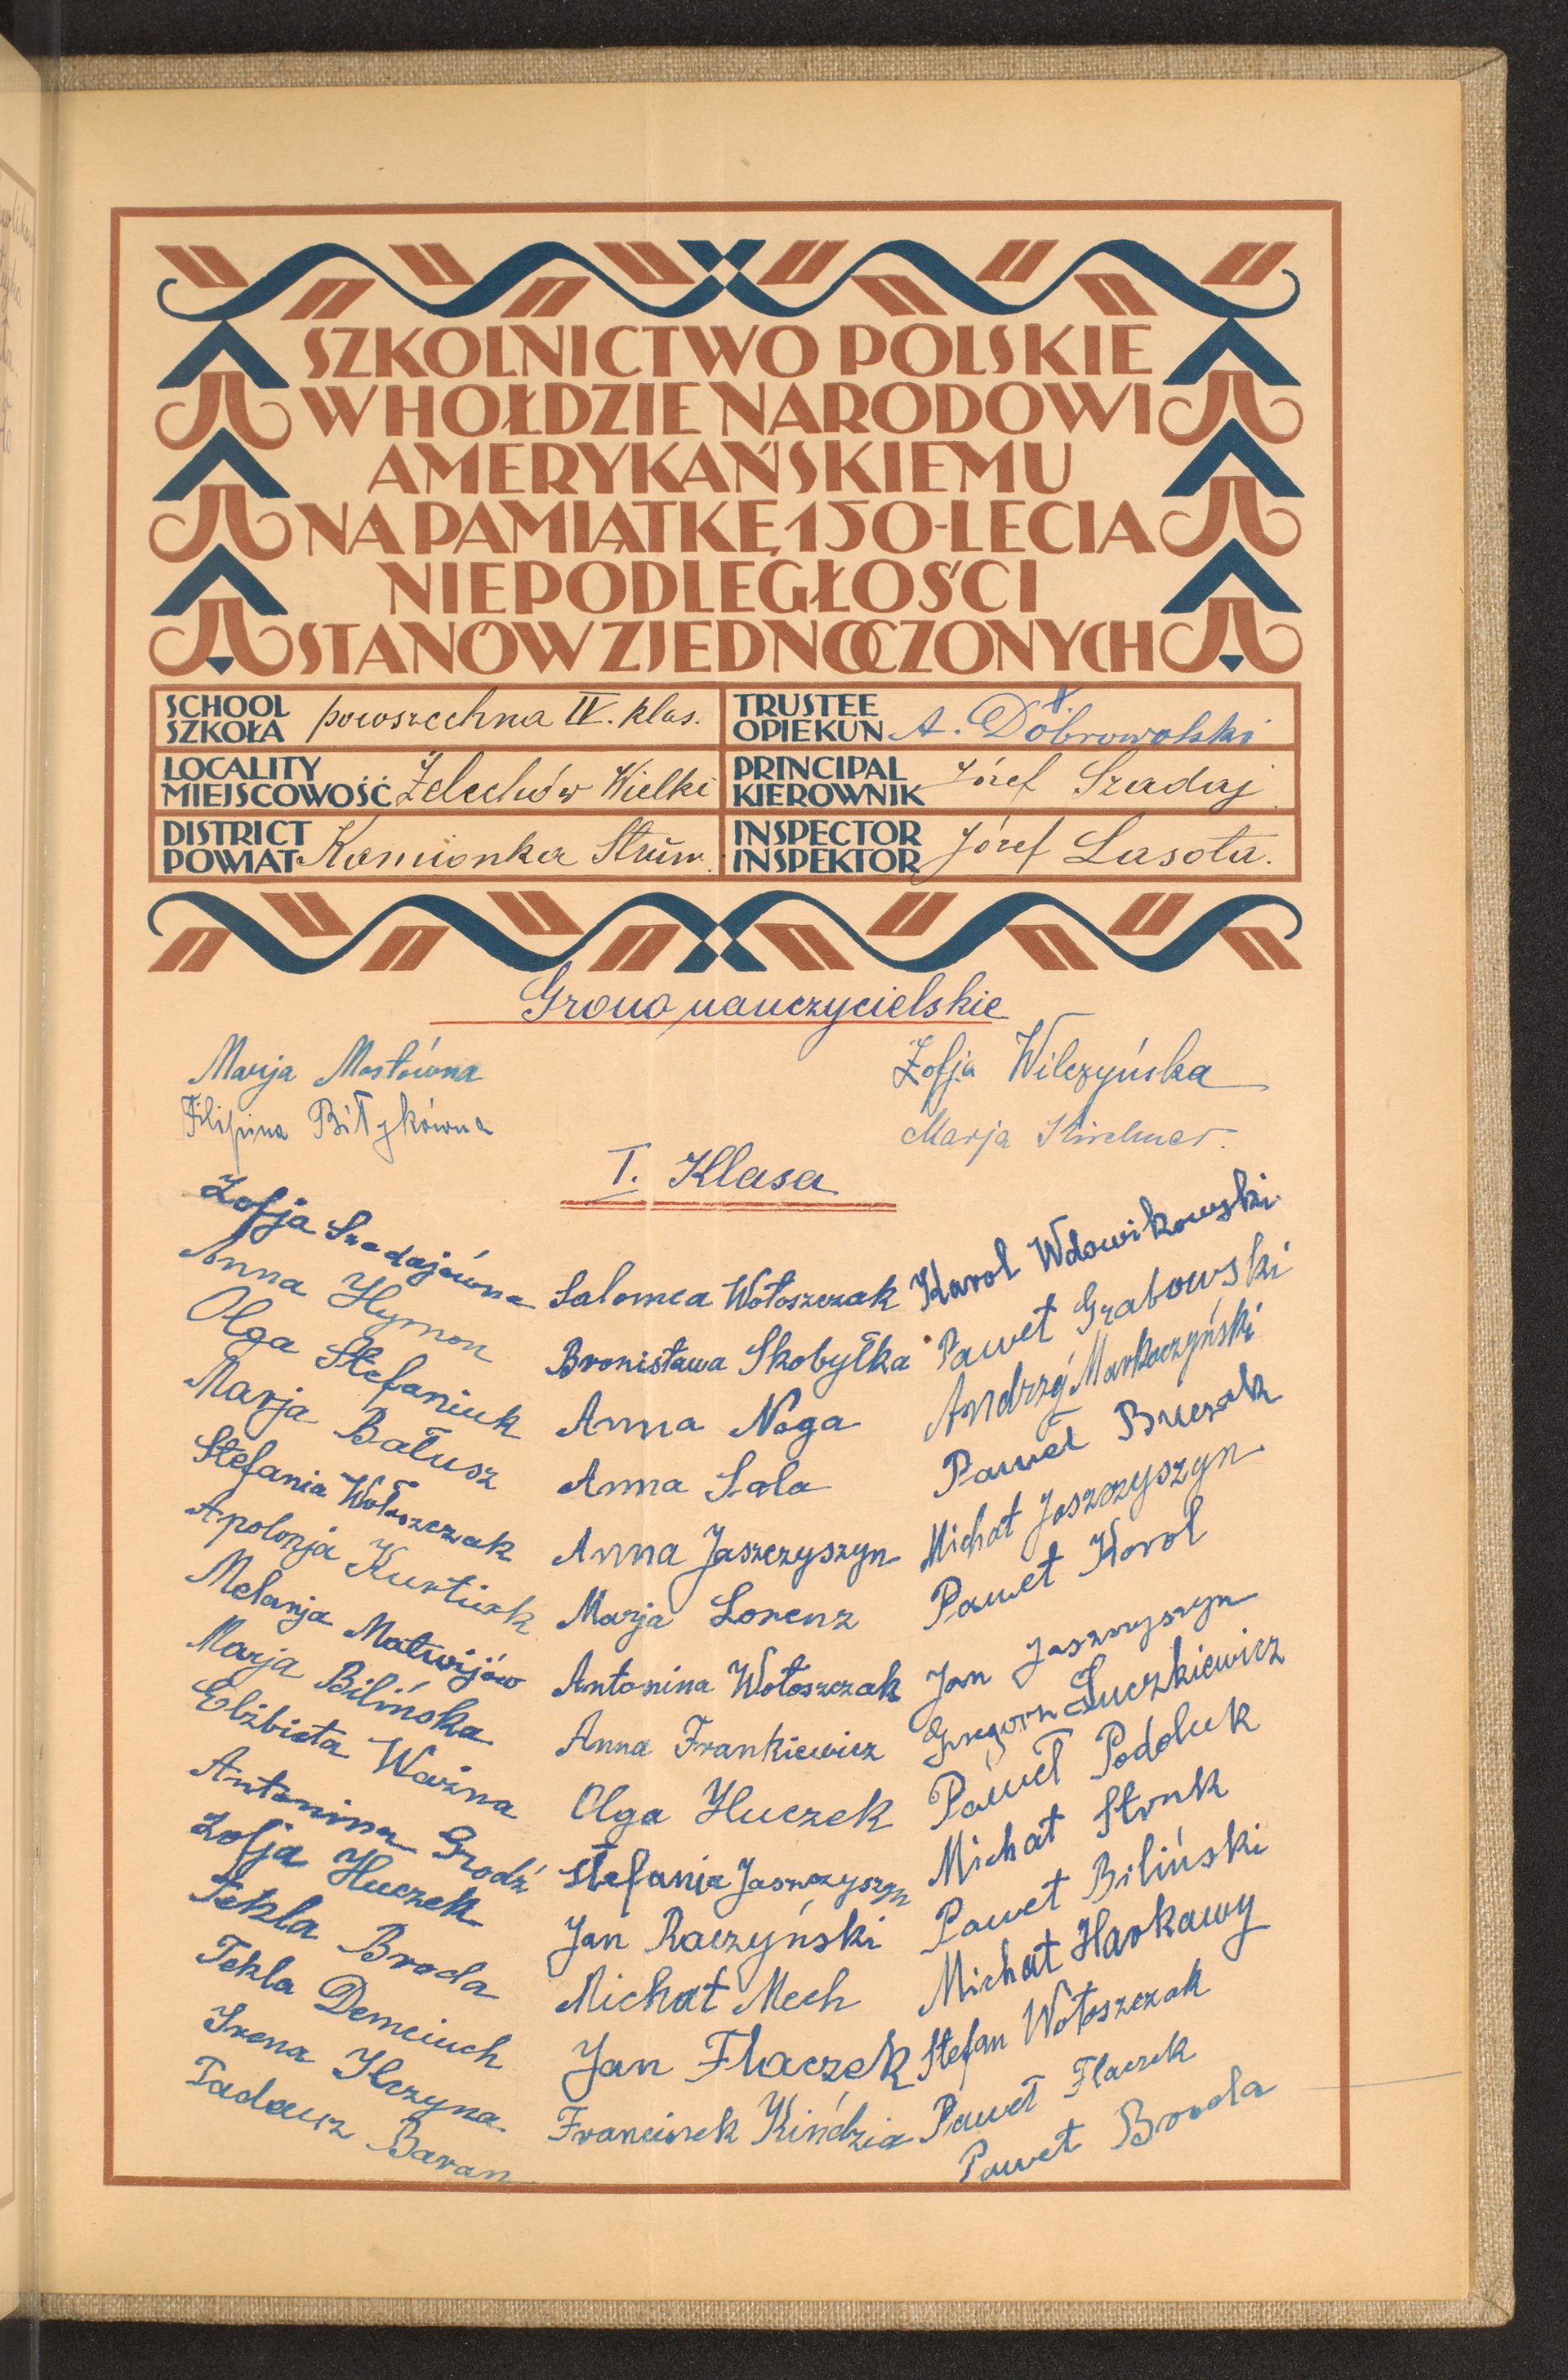 SZKOLNICTWO POLSKIE
W HOŁDZIE NARODOWI
AMERYKAŃSKIEMU
NA PAMIĄTKĘ 150-LECIA
NIEPODLEGŁOŚCI
STANÓW ZJEDNOCZONYCH
SCHOOL
SZKOŁA powszechna IV. klas.
TRUSTEE
OPIEKUN A. Dobrowolski
LOCALITY
MIEJSCOWOŚĆ Żelechów Wielki
PRINCIPAL
KIEROWNIK Józef Szadaj
DISTRICT
POWIAT Kamionka Strum.
INSPECTOR
INSPEKTOR Józef Lasota.
Grono nauczycielskie
Marja Mosłówna
Filipina Biłykówna
Zofja Wilczyńska
Marja Kirchner.
I. Klasa
Zofja Szadajówna
Anna Hymon
Olga Stefaniuk
Marja Bałusz
Stefania Wołoszczak
Apolonja Kurtiak
Melanja Matwijów
Marja Bilińska
Elżbieta Ważna
Antonina Grodź
Zofja Huczek
Tekla Broda
Tekla Demciuch
Irena Ilczyna
Tadeusz Baran
Salomea Wołoszczak
Bronisława Skobyłka
Anna Noga
Anna Sala
Anna Jaszczyszyn
Marja Lorenz
Antonina Wołoszczak
Anna Frankiewicz
Olga Huczek
Stefania Jaszczyszyn
Jan Raczyński
Michał Mech
Jan Flaczek
Franciszek Kińdzia
Karol Wdowikowski
Paweł Grabowski
Andrzej Markoczyński
Paweł Buczak
Michał Jaszczyszyn
Paweł Korol
Jan Jaszczyszyn
Grzegorz Łuczkiewicz
Paweł Podoluk
Michał Struk
Paweł Biliński
Michał Harkawy
Stefan Wołoszczak
Paweł Flaczek
Paweł Broda